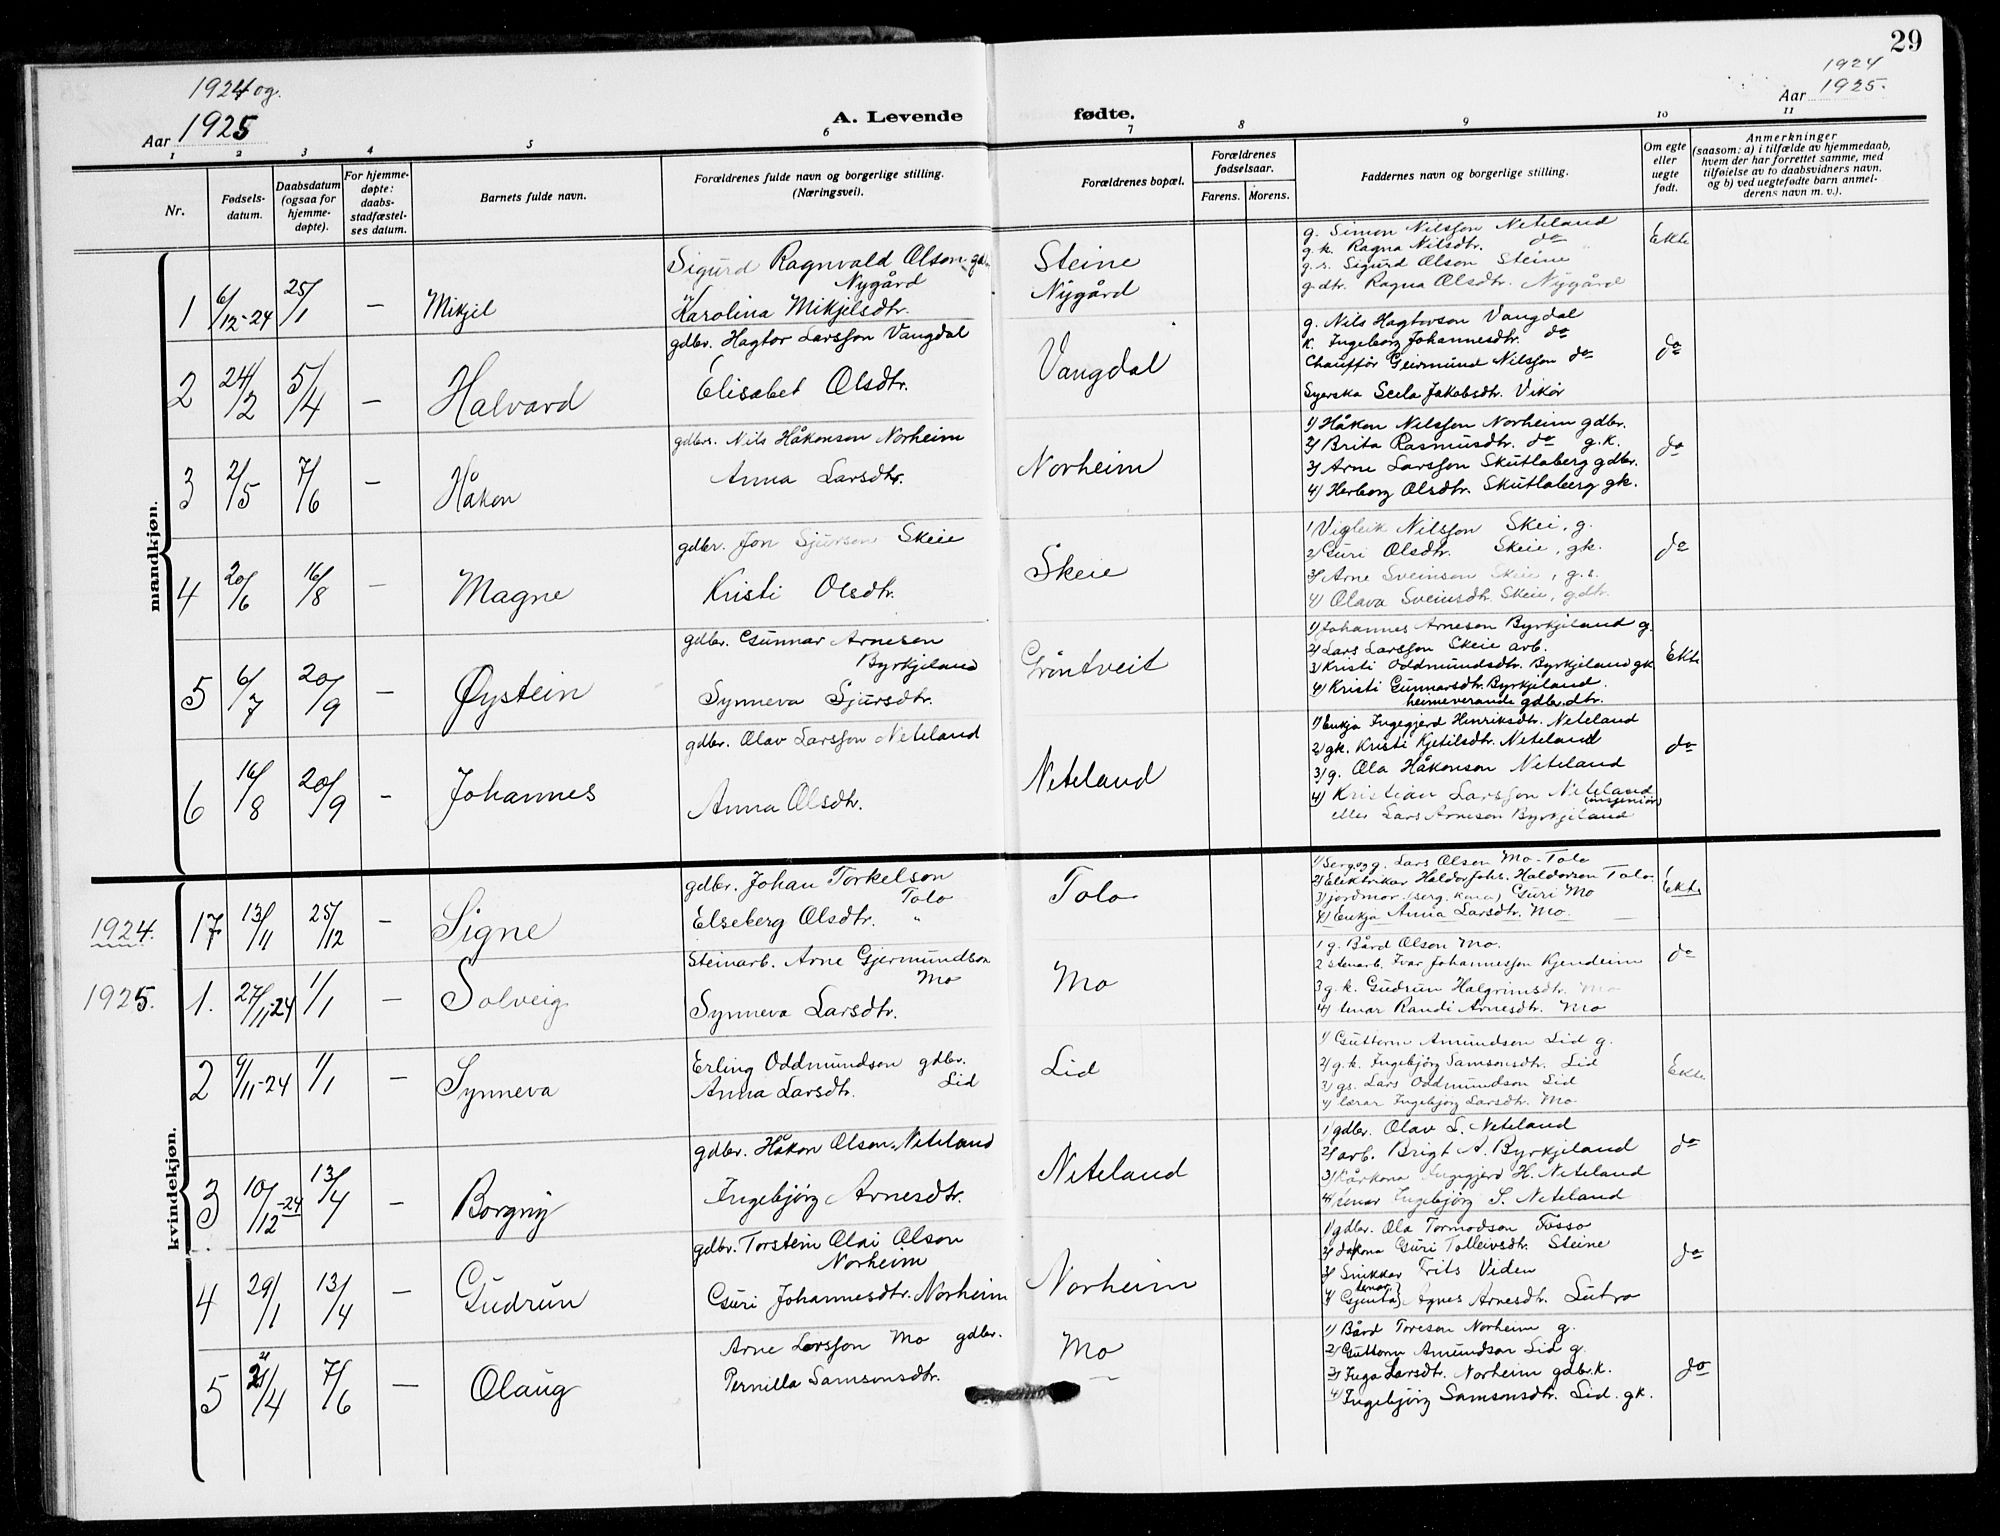 29
1924 og.
Aar 1925
A. Levende fødte.
1924
Aar 1925.
1 2 3 4 5 6 7 8 9 10 11
Nr.
Fødsels-
datum.
Daabsdatum
(ogsaa for
hjemme-
døpte).
For hjemme-
døpte:
daabs-
stadfæstel-
ses datum.
Barnets fulde navn.
Forældrenes fulde navn og borgerlige stilling.
(Næringsvei).
Forældrenes bopæl.
Forældrenes
fødselsaar.
Farens. Morens.
Faddernes navn og borgerlige stilling.
Om egte
eller
uegte
født.
Anmerkninger
(saasom: a) i tilfælde av hjemmedaab,
hvem der har forrettet samme, med
tilføielse av to daabsvidners navn,
og b) ved uegtefødte barn anmel-
derens navn m. v.).
mandkjøn.
1 6/12-24 25/1 — Mikjel
Sigurd Ragnvald Olson gdbr.
Nygård
Karolina Mikjelsdtr.
Steine
Nygård
g. Simon Nilsson Neteland
g.k. Ragna Nilsdtr. do
g.s. Sigurd Olson Steine
g.dtr. Ragna Olsdtr. Nygård
Ekte
2 24/2 5/4 — Halvard
gdbr. Hagtor Larsson Vangdal
Elisabet Olsdtr.
Vangdal
g. Nils Hagtorson Vangdal
k. Ingeborg Johannesdtr. do
Chauffør Geirmund Nilsson do
Syerska Seela Jakobsdtr. Vikør
do
3 2/5 7/6 — Håkon
gdbr. Nils Håkonson Norheim
Anna Larsdtr.
Norheim
1) Håkon Nilsson Norheim gdbr.
2) Brita Rasmusdtr. do g.k.
3) Arne Larsson Skutlaberg gdbr.
4) Herborg Olsdtr. Skutlaberg gk.
do
4 20/6 16/8 — Magne
gdbr. Jon Sjurson Skeie
Kristi Olsdtr.
Skeie
1) Vigleik Nilsson Skei, g.
2) Guri Olsdtr. Skeie, gk.
3) Arne Sveinson Skeie, g.s.
4) Olava Sveinsdtr. Skeie, gdtr.
do
5 6/7 20/9 — Øystein
gdbr. Gunnar Arneson
Byrkjeland
Synneva Sjursdtr.
Gröntveit
1) Johannes Arneson Byrkjeland g.
2) Lars Larsson Skeie arb.
3) Kristi Oddmundsdtr. Byrkjeland gk.
4) Kristi Gunnarsdtr. Byrkjeland.
heimeverande gdbr.dtr.
Ekte
6 16/8 20/9 — Johannes
gdbr. Olav Larsson Neteland
Anna Olsdtr.
Neteland
1) Enkja Ingegjerd Henriksdtr. Neteland
2) gk. Kristi Kjetilsdtr. Neteland
3) g. Ola Håkonson Neteland
4) Kristian Larsson Neteland
(ingeniør)
eller Lars Arneson Byrkjeland
do
kvindekjøn.
1924.
17 13/11 25/12 — Signe
gdbr. Johan Torkelson
Tolo
Elseberg Olsdtr. "
Tolo
Lars Olson Mo-Tolo
2) Elektrikar Haldor Johs. Haldorson Tolo
3) jordmor Guri Mo
4) Enkja Anna Larsdtr. Mo.
Ekte
1925.
1. 27/11-24 1/1 — Solveig
Steinarb. Arne Gjermundson
Mo
Synneva Larsdtr.
Mo
1 g. Bård Olson Mo.
2 stenarb. Ivar Johannesson Kjendeim
3 g.k. Gudrun Halgrimsdtr. Mo
4) tenar Randi Arnesdtr. Mo
do
2 9/11-24 1/1 — Synneva
Erling Oddmundson gdbr.
Lid
Anna Larsdtr.
Lid
1) Guttorm Amundson Lid g.
2) g.k. Ingebjörg Samsonsdtr. Lid
3) gs. Lars Oddmundson Lid
4) lærar Ingebjörg Larsdtr. Mo
Ekte
3 10/12-24 13/4 — Borgny
gdbr. Håkon Olson Neteland
Ingebjörg Arnesdtr.
Neteland
1) gdbr. Olav L. Neteland
2) arb. Brigt A. Byrkjeland
3) Kårkona Ingegjerd H. Neteland
4) tenar Ingebjörg S. Neteland
do
4 29/1 13/4 — Gudrun
gdbr. Torstein Olai Olson
Norheim
Guri Johannesdtr. Norheim
Norheim
1) gdbr. Ola Tormodson Fosso
2) Guri Tolleivsdtr. Steine
3) Snikkar Frits Viden
tenar
4) Gjenta Agnes Arnesdtr. Sutro
do
5 21/4 7/6 — Olaug
Arne Larsson Mo gdbr.
Pernilla Samsonsdtr.
Mo
—
1) Bård Toreson Norheim g.
2) Guttorm Amundson Lid g.
3) Inga Larsdtr. Norheim gdbr.k.
4) Ingebjörg Samsonsdtr. Lid. gk.
do